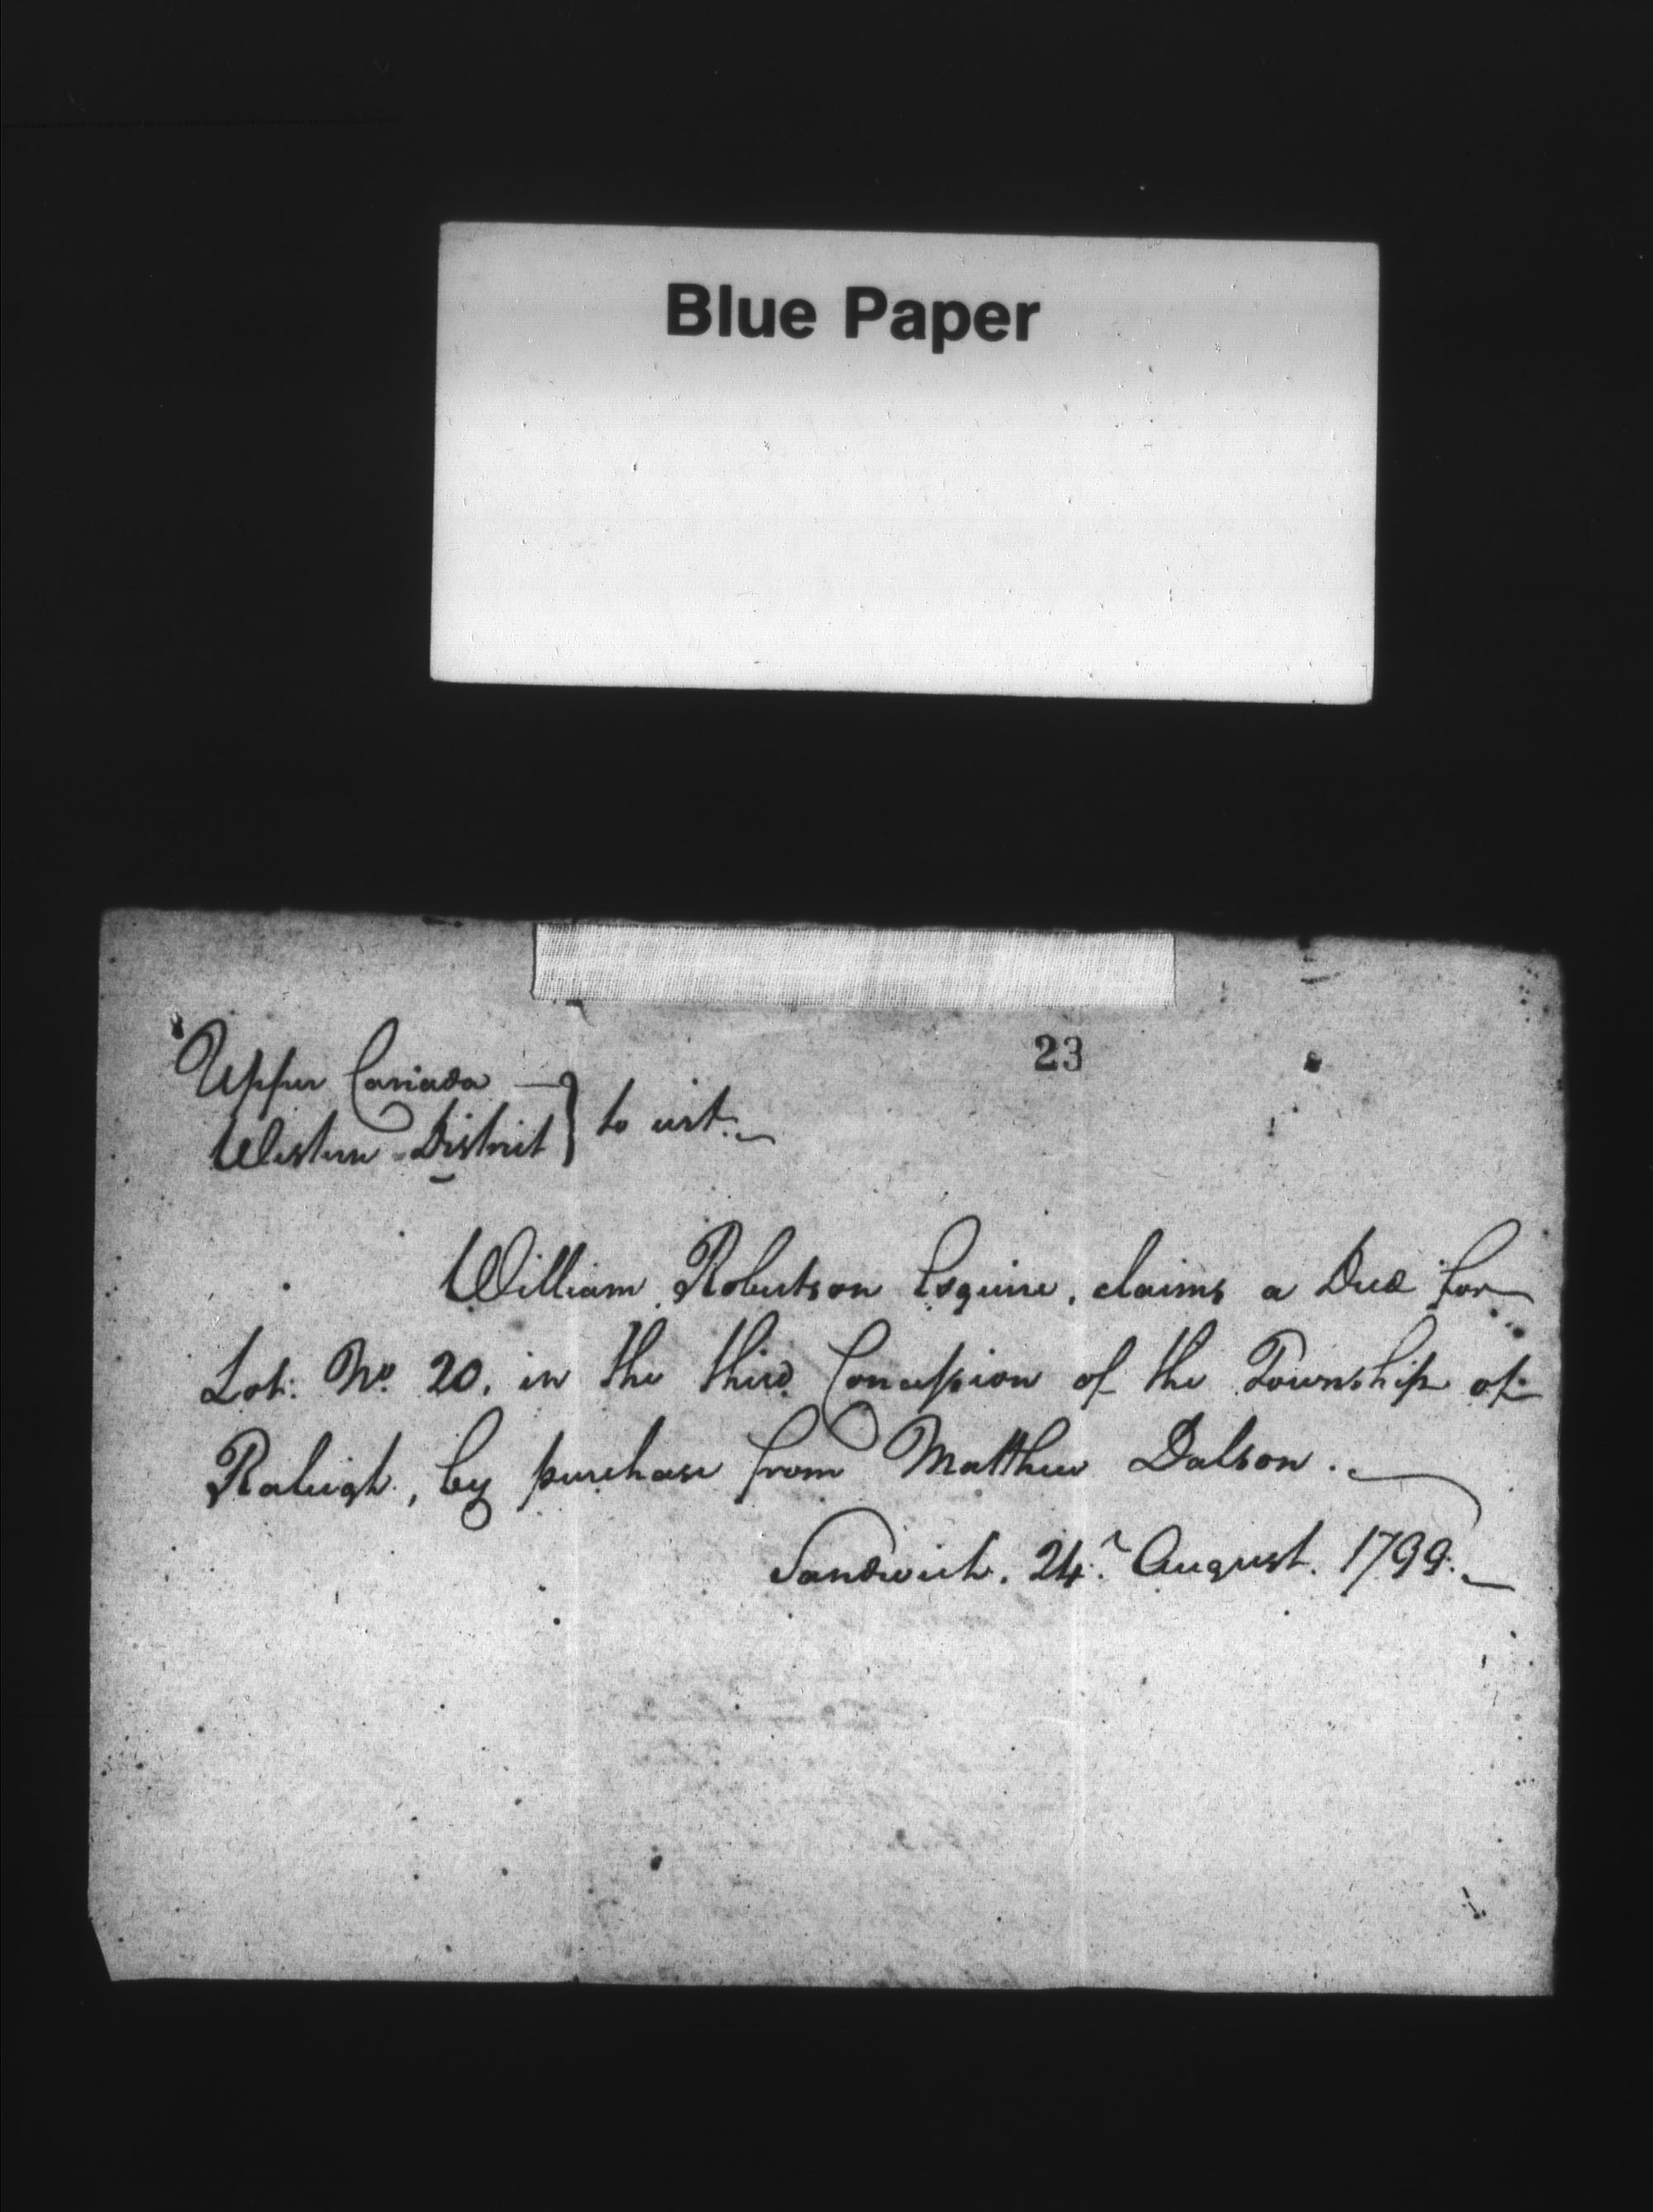 Blue Paper
23
Upper Canada —
Western District } to wit.
William Robertson Esquire, claims a Deed for
Lot: No. 20. in the third Concession of the Township of
Raleigh, by purchase from Matthew Dalson.
Sandwich. 24. August. 1799.